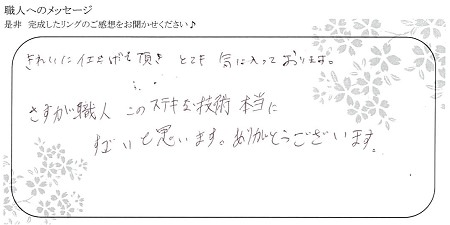 職人へのメッセージ
是非 完成したリングのご感想をお聞かせください♪
きれいに仕上げを頂き とても 気に入っております。
さすが職人 このステキな技術 本当に
すごいと思います。ありがとうございます。